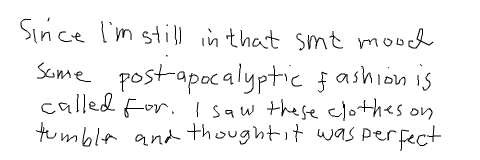 Since I'm still in that smt mood
some post-apocalyptic fashion is
called for. I saw these clothes on
tumblr and thought it was perfect